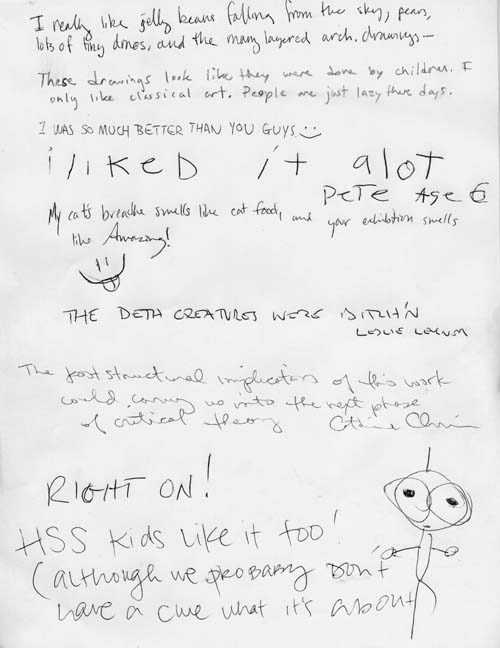 I really like jelly beans falling from the sky, pears,
lots of tiny dinos, and the many layered arch. drawings—
These drawings look like they were done by children. I
only like classical art. People are just lazy these days.
I WAS SO MUCH BETTER THAN YOU GUYS
i liked it alot
PeTe Age 6
My cat's breathe smells like cat food, and your exhibition smells
like Amazing!
THE DETH CREATURES WERE BITCH'N
LESLIE
The post structural implications of this work
could carry us into the next phase
of critical theory
RIGHT ON!
HSS Kids Like it too!
(although we probably DON'T
have a clue what it's about)